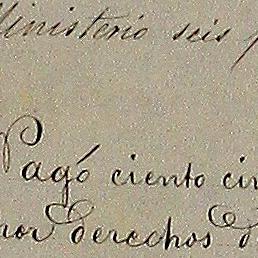 Ministerio seis
Pagó ciento cin
por derechos d